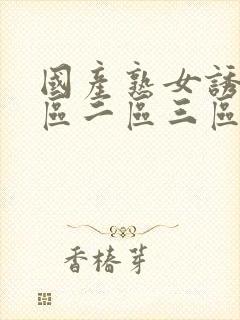 國產熟女誘
區二區三區
香椿芽